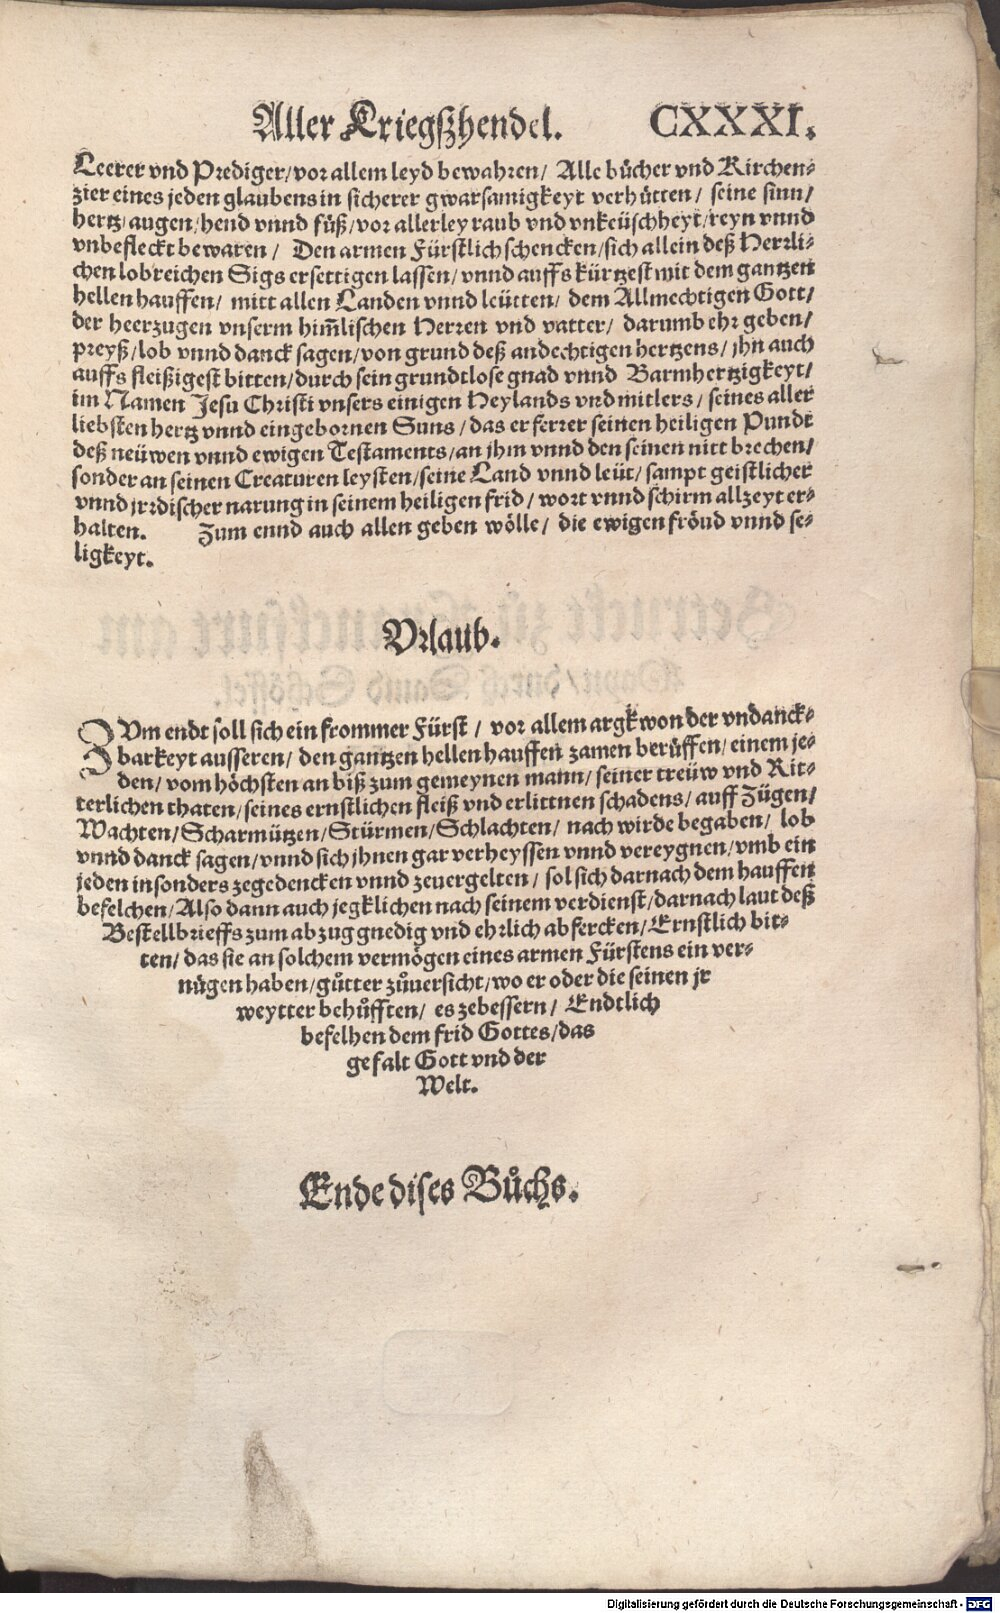 Aller Kriegßhendel. CXXXI.
Leerer vnd Prediger/ vor allem leyd bewahren/ Alle bücher vnd Kirchen-
zier eines jeden glaubens in sicherer gwarsamigkeyt verhütten/ seine sinn/
hertz/ augen/ hend vnnd füß/ vor allerley raub vnd vnkeüschheyt/ reyn vnnd
vnbefleckt bewaren/ Den armen Fürstlich schencken/ sich allein deß Herrli-
chen lobreichen Sigs ersettigen lassen/ vnnd auffs kürtzest mit dem gantzen
hellen hauffen/ mitt allen Landen vnnd leütten/ dem Allmechtigen Gott/
der heerzugen vnserm him̄lischen Herren vnd vatter/ darumb ehr geben/
preyß/ lob vnnd danck sagen/ von grund deß andechtigen hertzens/ jhn auch
auffs fleißigest bitten/ durch sein grundtlose gnad vnnd Barmhertzigkeyt/
im Namen Jesu Christi vnsers einigen Heylands vnd mitlers/ seines aller
liebsten hertz vnnd eingebornen Suns/ das er ferrer seinen heiligen Pundt
deß neüwen vnnd ewigen Testaments/ an jhm vnnd den seinen nitt brechen/
sonder an seinen Creaturen leysten/ seine Land vnnd leüt/ sampt geistlicher
vnnd jrrdischer narung in seinem heiligen frid/ wort vnnd schirm allzeyt er-
halten. Zum ennd auch allen geben wölle/ die ewigen fröud vnnd se-
ligkeyt.
Vrlaub.
ZVm endt soll sich ein frommer Fürst/ vor allem argkwon der vndanck-
barkeyt ausseren/ den gantzen hellen hauffen zamen berüffen/ einem je-
den/ vom höchsten an biß zum gemeynen mann/ seiner treüw vnd Rit-
terlichen thaten/ seines ernstlichen fleiß vnd erlittnen schadens/ auff Zügen/
Wachten/ Scharmützen/ Stürmen/ Schlachten/ nach wirde begaben/ lob
vnnd danck sagen/ vnnd sich jhnen gar verheyssen vnnd vereygnen/ vmb ein
jeden insonders zegedencken vnnd zeuergelten/ sol sich darnach dem hauffen
befelchen/ Also dann auch jegklichen nach seinem verdienst/ darnach laut deß
Bestellbrieffs zum abzug gnedig vnd ehrlich abfercken/ Ernstlich bit-
ten/ das sie an solchem vermögen eines armen Fürstens ein ver-
nügen haben/ gůtter zůuersicht/ wo er oder die seinen jr
weytter behůfften/ es zebessern/ Endtlich
befelhen dem frid Gottes/ das
gefalt Gott vnd der
Welt.
Ende dises Bůchs.
Digitalisierung gefördert durch die Deutsche Forschungsgemeinschaft - DFG